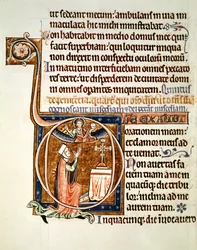 ut sedeant mecum: ambulans in uia in
maculata hic michi ministrabat.
Non habitabit in medio domus mee qui
facit superbiam: qui loquitur iniqua
non direxit in conspectu oculorum meorum
In matutino interficiebam omnes peccato
res terre: ut disperderem de ciuitate domi
ni omnes operantes iniquitatem.
ne exaudi
orationem meam:
et clamor meus ad
te ueniat.
Non auertas fa
ciem tuam a me in
quacumque die tribu
lor: inclina ad me
aurem tuam.
In quacumque die inuocauero